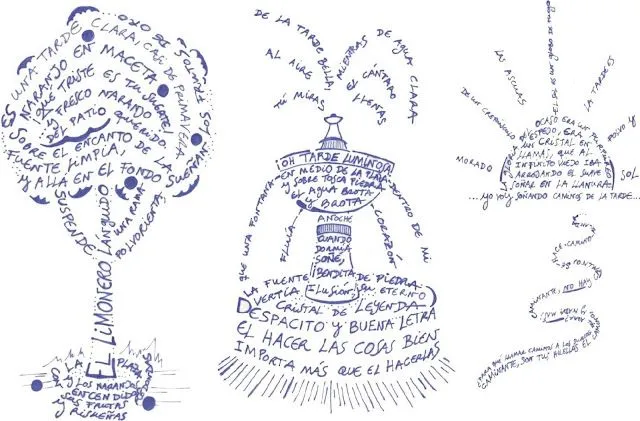 ES UNA TARDE CLARA, CASI DE PRIMAVERA
NARANJO EN MACETA
QUE TRISTE ES TU SUERTE!
FRESCO NARANJO
DEL PATIO QUERIDO
SOBRE EL ENCANTO DE LA
FUENTE LIMPIA,
Y ALLÁ EN EL FONDO SUEÑAN
SUS FRUTOS DE ORO
EL LIMONERO LÁNGUIDO SUSPENDE
UNA RAMA
POLVORIENTA
LA PLAZA
Y LOS NARANJOS
ENCENDIDOS
SUS FRUTAS
Y RISUEÑAS
DE LA TARDE BELLA,
MIENTRAS DE AGUA CLARA
AL AIRE
EL CÁNTARO
TÚ MIRAS
LLENAS
¡OH TARDE LUMINOSA!
EN MEDIO DE LA PLAZA
Y SOBRE TOSCA PIEDRA
EL AGUA BROTA
Y BROTA
ANOCHE
CUANDO
DORMÍA
SOÑÉ,
¡BENDITA
ILUSIÓN,
QUE UNA FONTANA
FLUÍA
DENTRO DE MI
CORAZÓN
LA FUENTE DE PIEDRA
VERTÍA SU ETERNO
CRISTAL DE LEYENDA
DESPACITO Y BUENA LETRA
EL HACER LAS COSAS BIEN
IMPORTA MÁS QUE EL HACERLAS
LAS ASCUAS
DE UN CREPÚSCULO
MORADO
LA TARDE ES
POLVO Y
SOL
OCASO ERA UN PURPÚREO
ESPEJO, ERA
UN CRISTAL EN
LLAMAS, QUE AL
INFINITO VIEJO IBA
ARROJANDO EL SUAVE
SOÑAR EN LA LLANURA.
...YO VOY SOÑANDO CAMINOS DE LA TARDE...
CAMINANTE, NO HAY
PARA QUÉ LLAMAR CAMINOS A LOS SURCOS DEL
CAMINANTE, SON TUS HUELLAS EL CAMINO